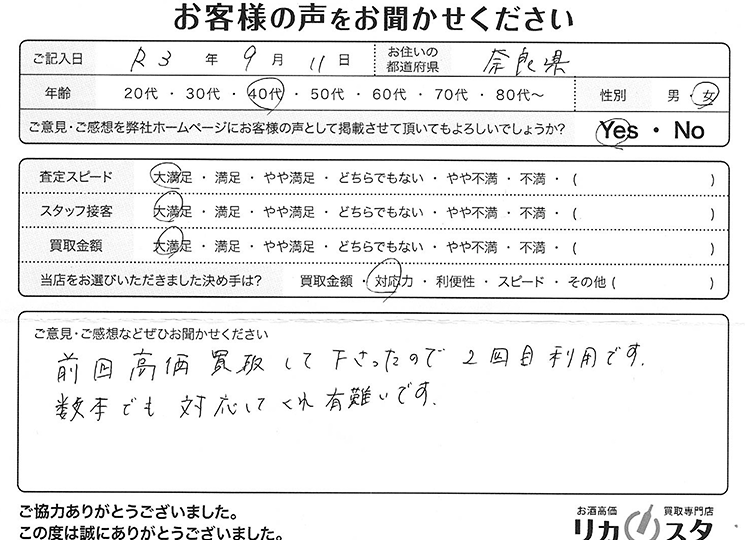 お客様の声をお聞かせください
ご記入日 R3 年 9 月 11 日 お住いの都道府県 奈良県
年齢 20代 ・ 30代 ・ 40代 ・ 50代 ・ 60代 ・ 70代 ・ 80代〜 性別 男 ・ 女
ご意見・ご感想を弊社ホームページにお客様の声として掲載させて頂いてもよろしいでしょうか? Yes ・ No
査定スピード 大満足 ・ 満足 ・ やや満足 ・ どちらでもない ・ やや不満 ・ 不満 ・ ( )
スタッフ接客 大満足 ・ 満足 ・ やや満足 ・ どちらでもない ・ やや不満 ・ 不満 ・ ( )
買取金額 大満足 ・ 満足 ・ やや満足 ・ どちらでもない ・ やや不満 ・ 不満 ・ ( )
当店をお選びいただきました決め手は? 買取金額 ・ 対応力 ・ 利便性 ・ スピード ・ その他 ( )
ご意見・ご感想などぜひお聞かせください
前回高価買取して下さったので2回目利用です.
数本でも対応してくれ有難いです.
ご協力ありがとうございました。
この度は誠にありがとうございました。
お酒高価 買取専門店
リカスタ